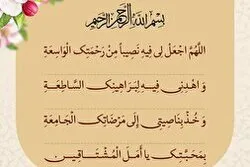 بِسْمِ اللهِ الرَّحْمنِ الرَّحِيمِ
اَللّهُمَّ اجْعَلْ لی فیهِ نَصیباً مِنْ رَحْمَتِکَ الْوَاسِعَةِ
وَ اهْدِنی فیهِ لِبَرَاهینِکَ السَّاطِعَةِ
وَ خُذْ بِنَاصِیَتی إِلَى مَرْضَاتِکَ الْجَامِعَةِ
بِمَحَبَّتِکَ یا أَمَلَ الْمُشْتَاقینَ